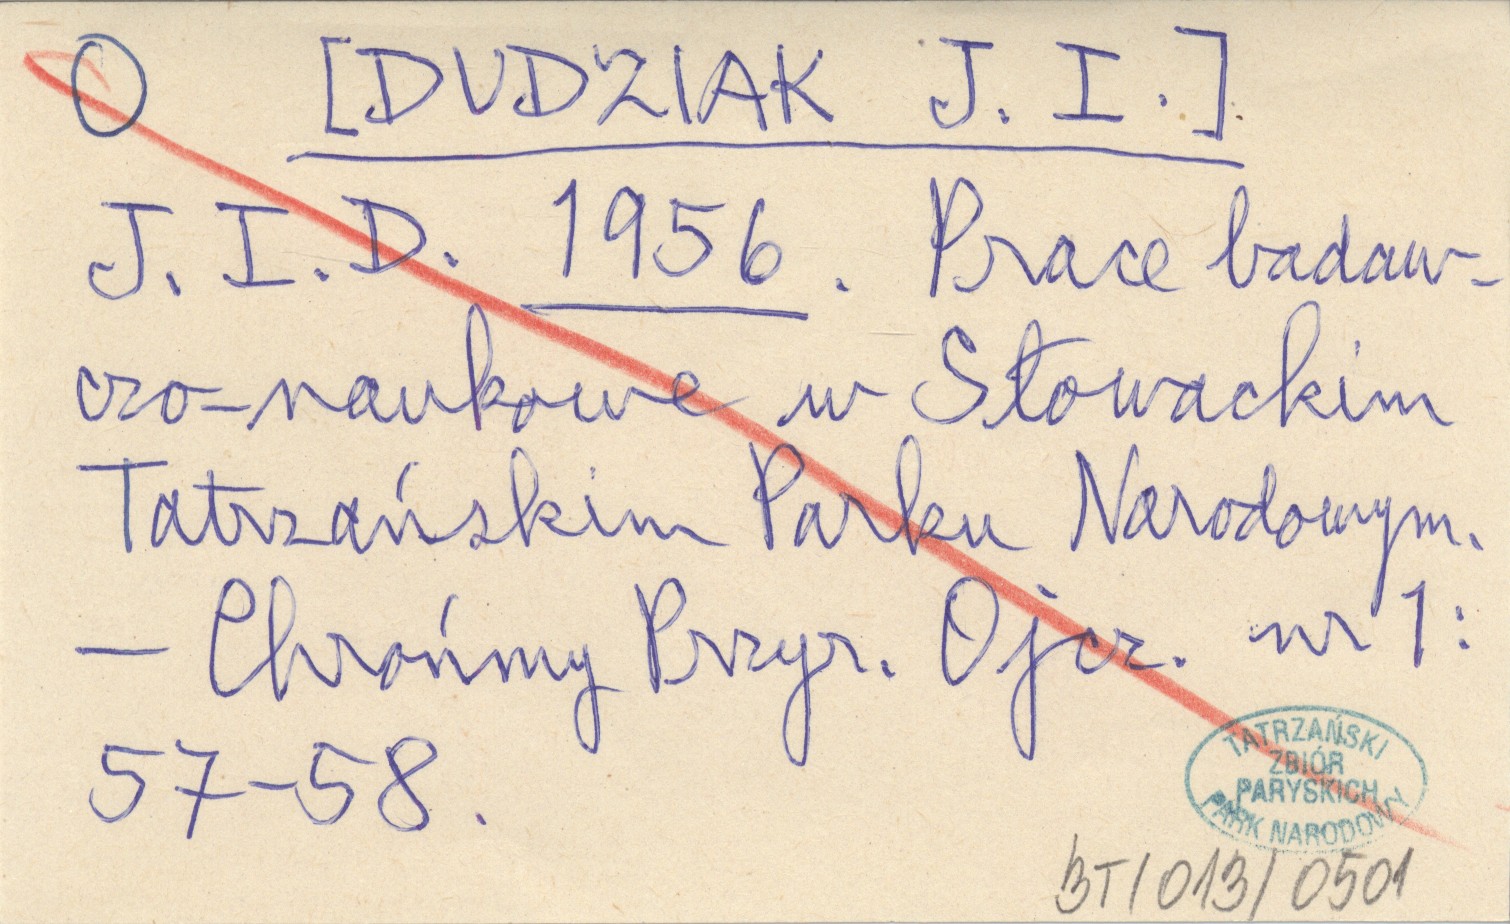 O [DUDZIAK J. I.]
J. I. D. 1956. Prace badaw-
czo-naukowe w Słowackim
Tatrzańskim Parku Narodowym.
— Chrońmy Przyr. Ojcz. nr 1:
57-58.
TATRZAŃSKI
ZBIÓR
PARYSKICH
PARK NARODOWY
BT/013/0501